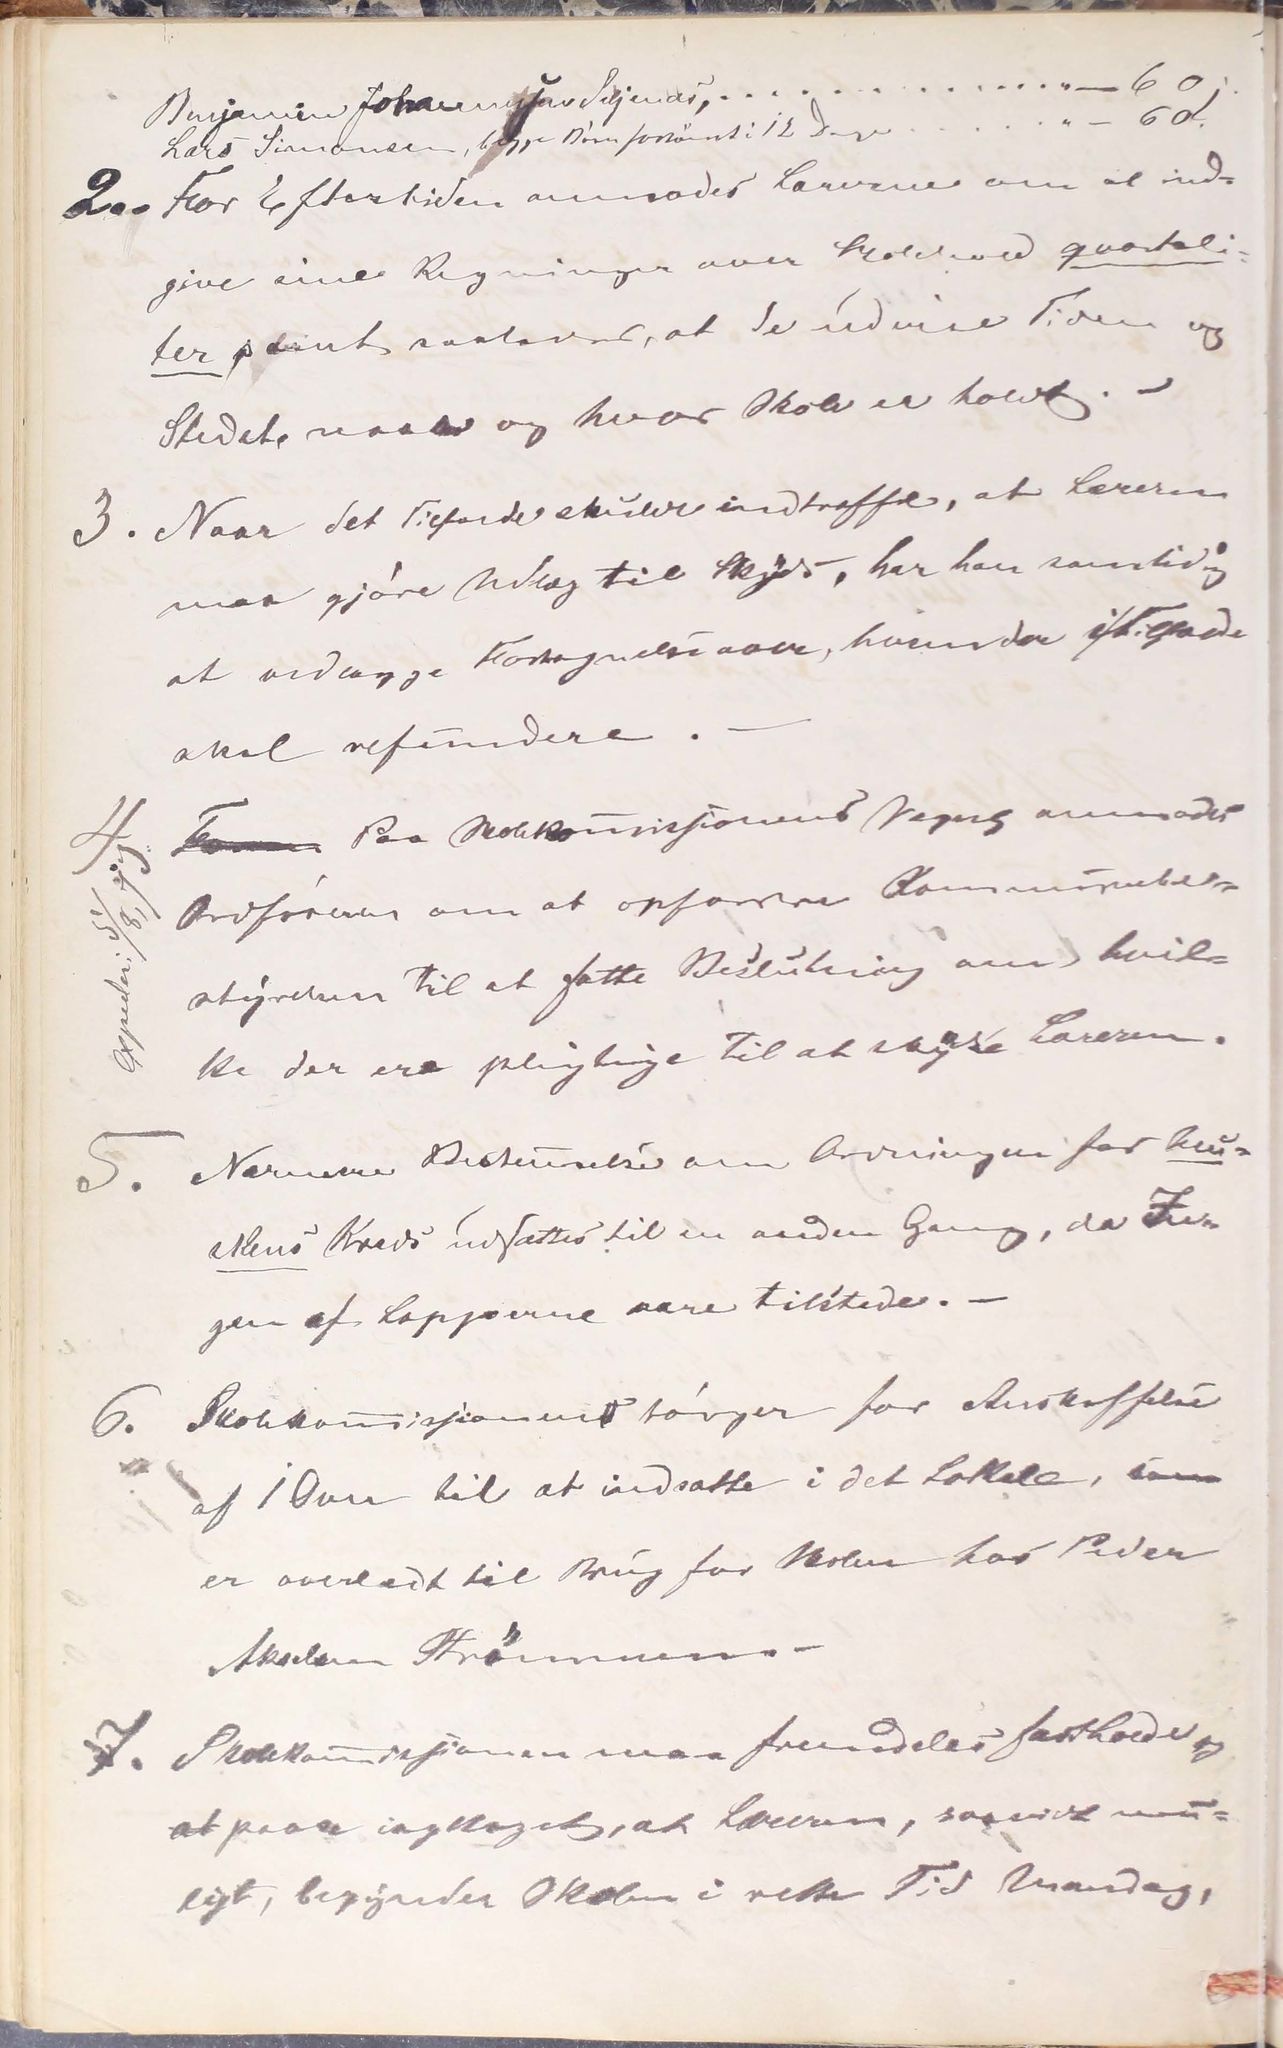 Benjamin Johannessen Seljenæs, . . . . . . . . . . . . " — 60;
Lars Simonsen, begge Børn forsømt i 12 Dage . . . . . . " — 60.
2. For Eftertiden anmodes Lærerne om at ind-
give sine Regninger over Skolehold qvartali-
ter, samt saaledes, at de udvise Tiden og
Stedet, naar og hvor Skole er holdt. —
3. Naar det Tilfælde skulde indtræffe, at Læreren
maa gjøre Udlæg til Skyds, har han samtidig
at vedlægge Fortegnelse over, hvem der i Tilfælde
skal refundere. —
4. Paa Skolekommissionens Vegne anmodes
Ordføreren om at opfordre Kommunebe-
styrelsen til at fatte Beslutning om, hvil-
ke der ere pligtige til at skydse Læreren.
Expeder: 5/8, 79.
5. Nærmere Bestemmelse om Ordningen for
Kreds udsættes til en anden Gang, da In-
gen af Lapperne vare tilstede. —
6. Skolekommissionen sørger for Anskaffelse
af 1 Ovn til at indsætte i det Lokale, som
er overladt til Brug for Skolen hos Peder
Akselsen Strømmen. —
7. Skolekommissionen maa fremdeles fastholde og
at paase iagttaget, at Læreren, saavidt mu-
ligt, begynder Skolen i rette Tid Mandag,